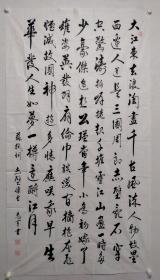 大江東去浪淘盡千古風流人物故壘
西邊人道是三國周郎赤壁亂石穿
空驚濤拍岸捲起千堆雪江山如畫一時多
少豪傑遙想公瑾當年小喬初嫁了
雄姿英發羽扇綸巾談笑間檣櫓灰飛
煙滅故國神遊多情應笑我早生
華發人生如夢一樽還酹江月
蘇軾詞赤壁懷古